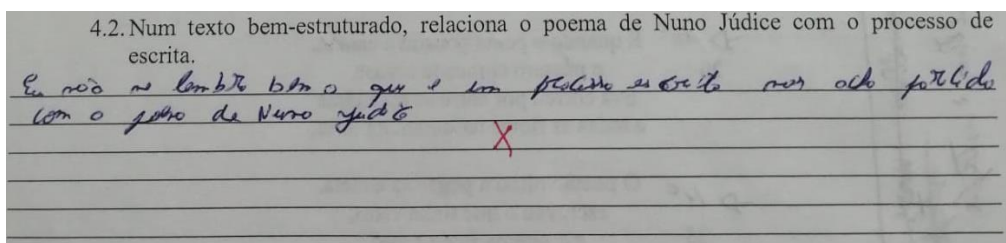 4.2. Num texto bem-estruturado, relaciona o poema de Nuno Júdice com o processo de
escrita.
Eu não me lembro bem o que é um processo escrito mas acho
com o de Nuno Judice
X